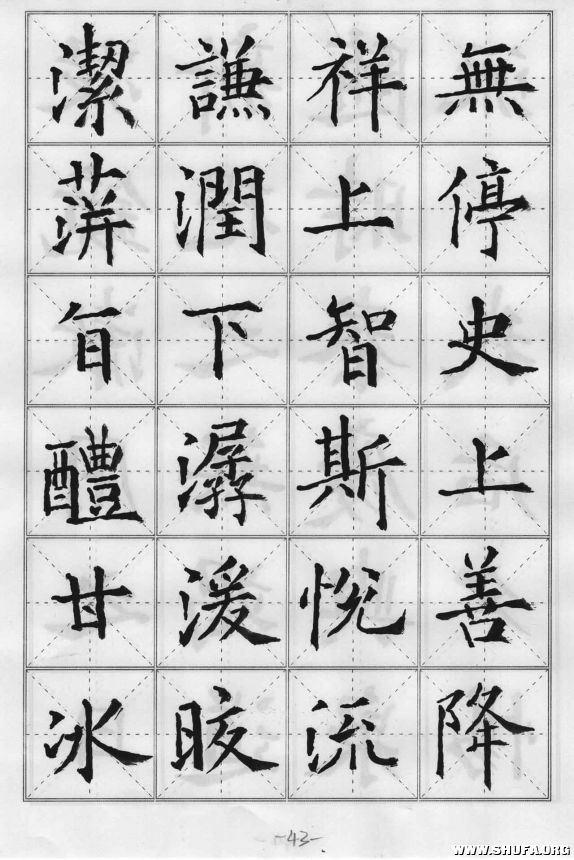 無停史上善降
祥上智斯悅流
謙潤下潺湲皎
潔蓱旨醴甘冰
-43-
WWW.SHUFA.ORG